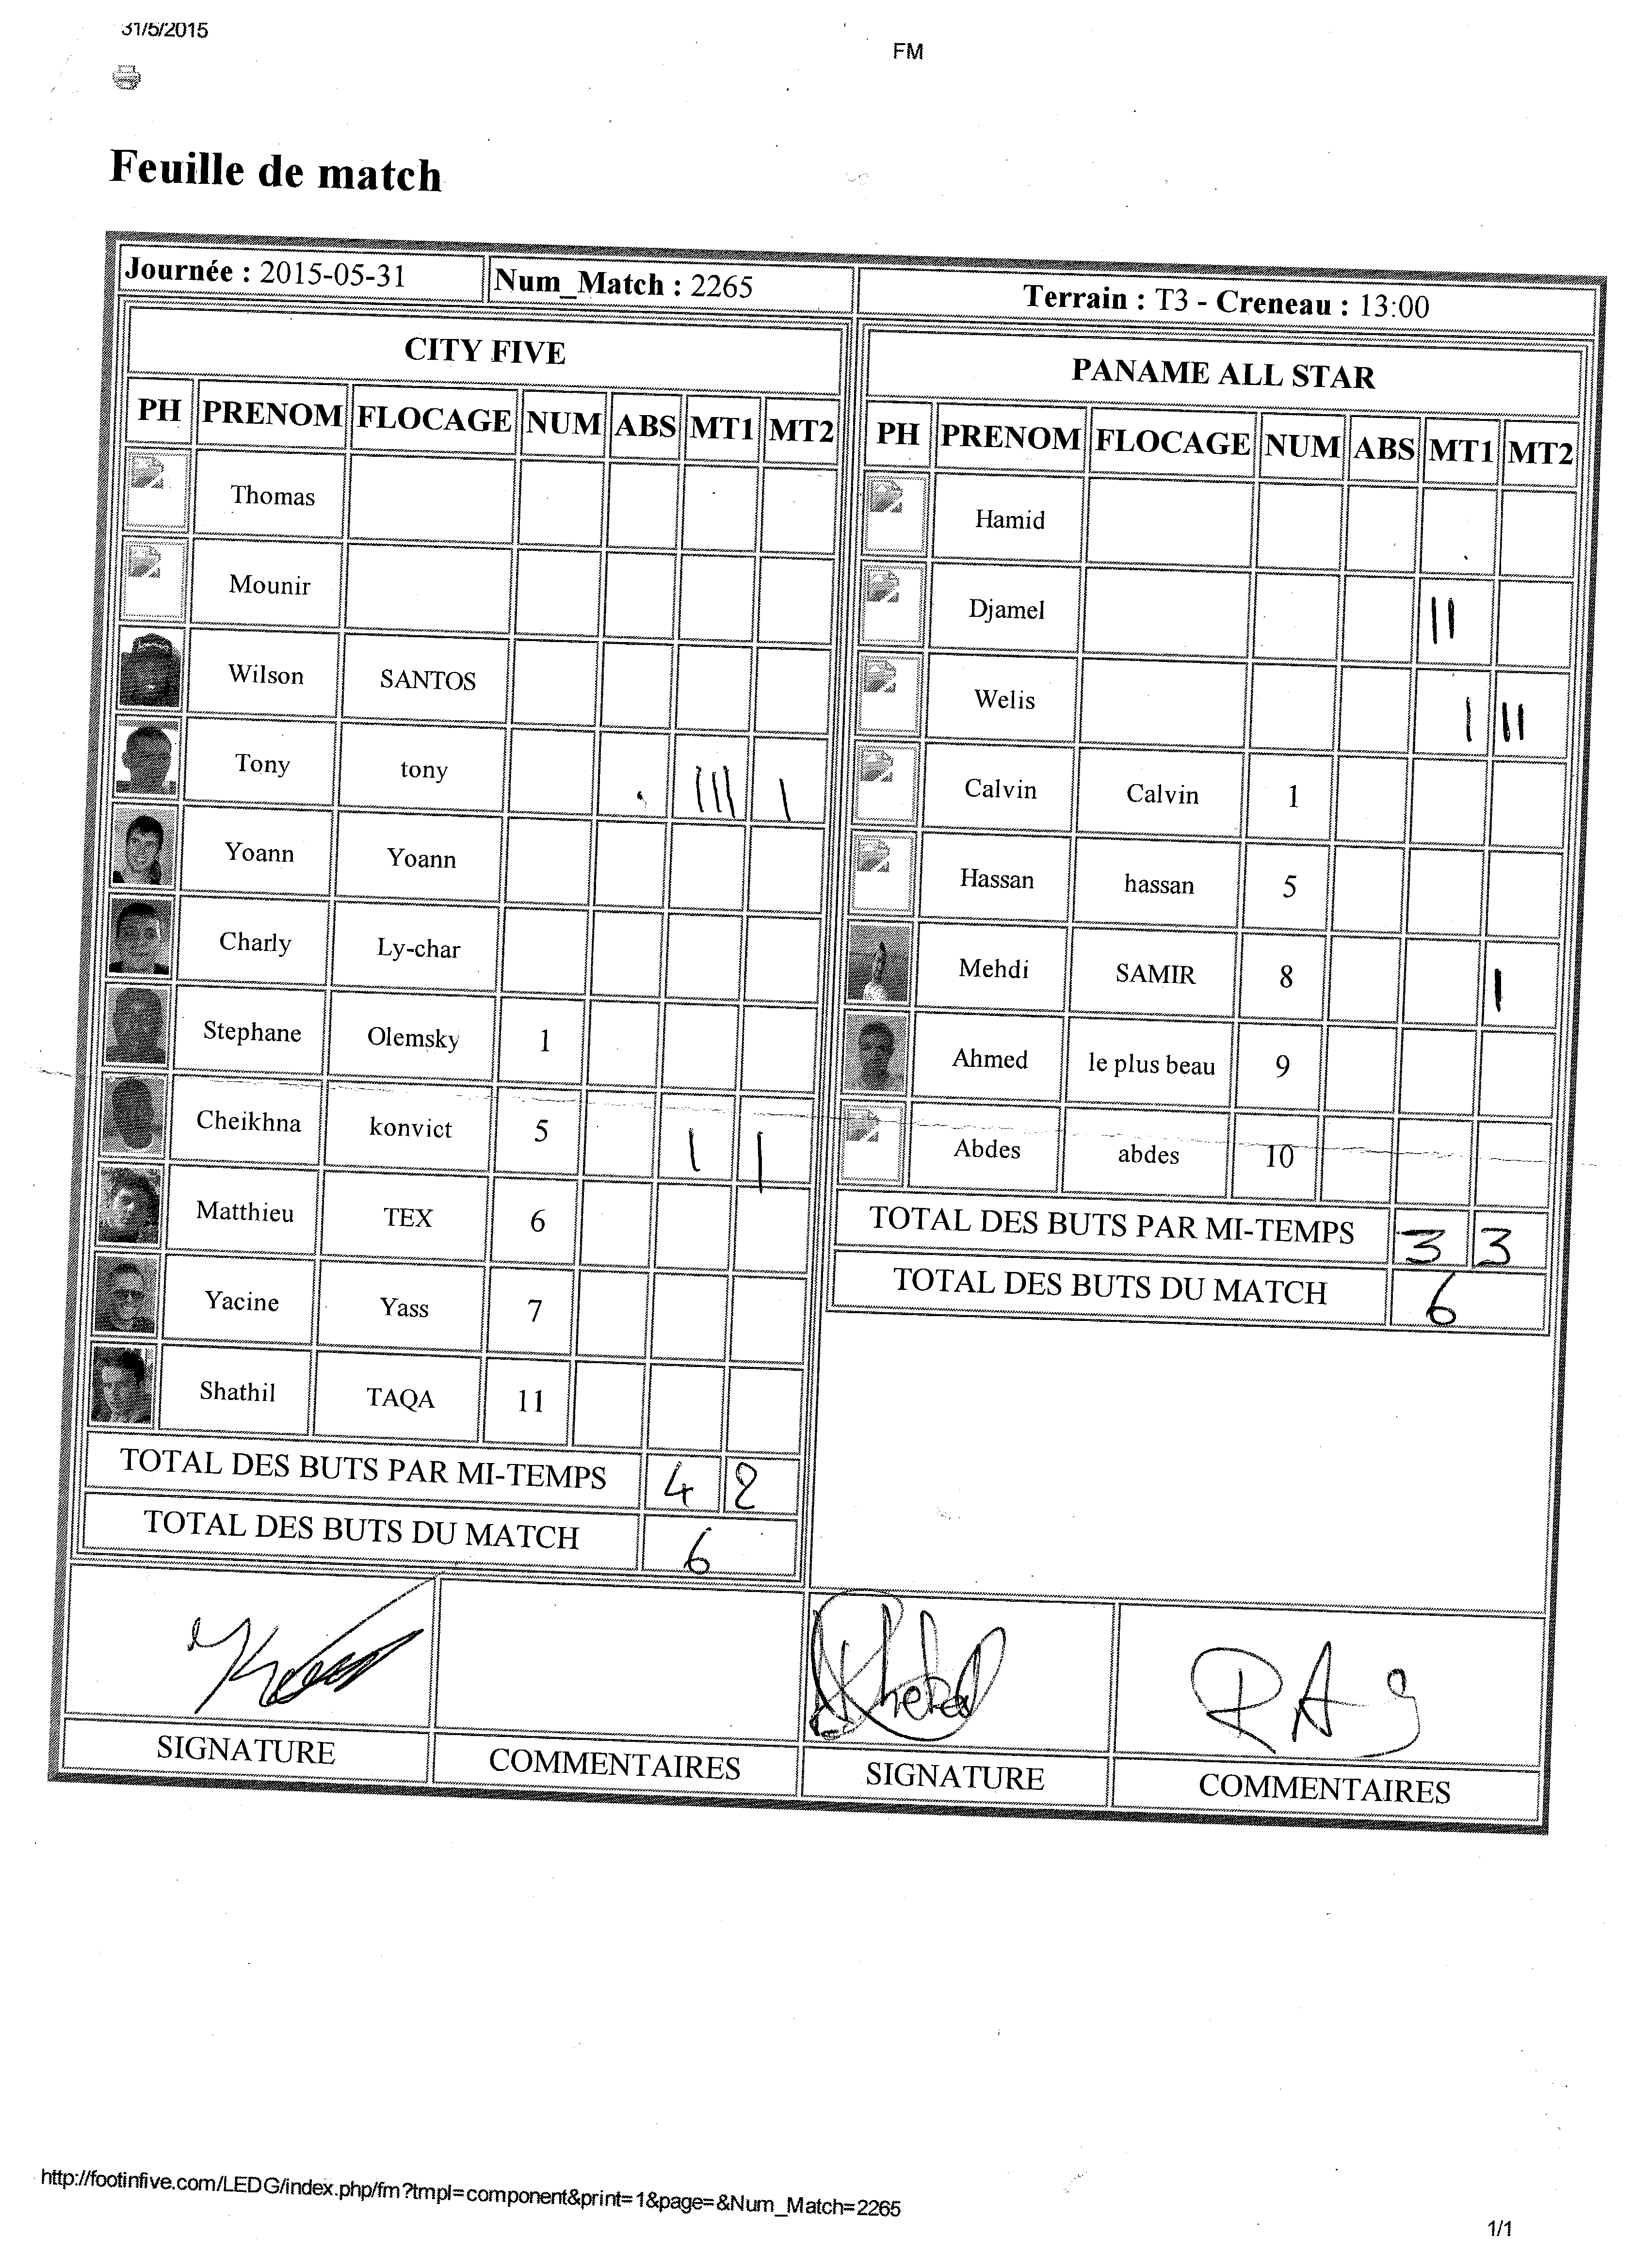 31/5/2015
FM
Feuille de match
Journée : 2015-05-31 Num_Match : 2265 Terrain : T3 - Creneau : 13:00
CITY FIVE
PH PRENOM FLOCAGE NUM ABS MT1 MT2
Thomas
Mounir
Wilson SANTOS
Tony tony III I
Yoann Yoann
Charly Ly-char
Stephane Olemsky 1
Cheikhna konvict 5 I I
Matthieu TEX 6
Yacine Yass 7
Shathil TAQA 11
TOTAL DES BUTS PAR MI-TEMPS 4 2
TOTAL DES BUTS DU MATCH 6
PANAME ALL STAR
PH PRENOM FLOCAGE NUM ABS MT1 MT2
Hamid
Djamel II
Welis I II
Calvin Calvin 1
Hassan hassan 5
Mehdi SAMIR 8 I
Ahmed le plus beau 9
Abdes abdes 10
TOTAL DES BUTS PAR MI-TEMPS 3 3
TOTAL DES BUTS DU MATCH 6
RAS
SIGNATURE COMMENTAIRES SIGNATURE COMMENTAIRES
http://footinfive.com/LEDG/index.php/fm?tmpl=component&print=1&page=&Num_Match=2265
1/1